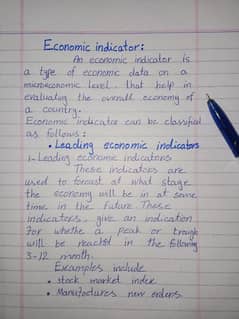 Economic indicator:
An economic indicator is
a type of economic data on a
microeconomic level, that help in
evaluating the overall economy of
a country.
Economic indicator can be classified
as follows:
• Leading economic indicators
1- Leading economic indicators
These indicators are
used to forcast at what stage
the economy will be in at some
time in the future. These
indicators, give an indication
For whethe a peak or trough
will be reached in the following
3-12 month.
Excamples include
• stock market index
• Manufactures new orders.